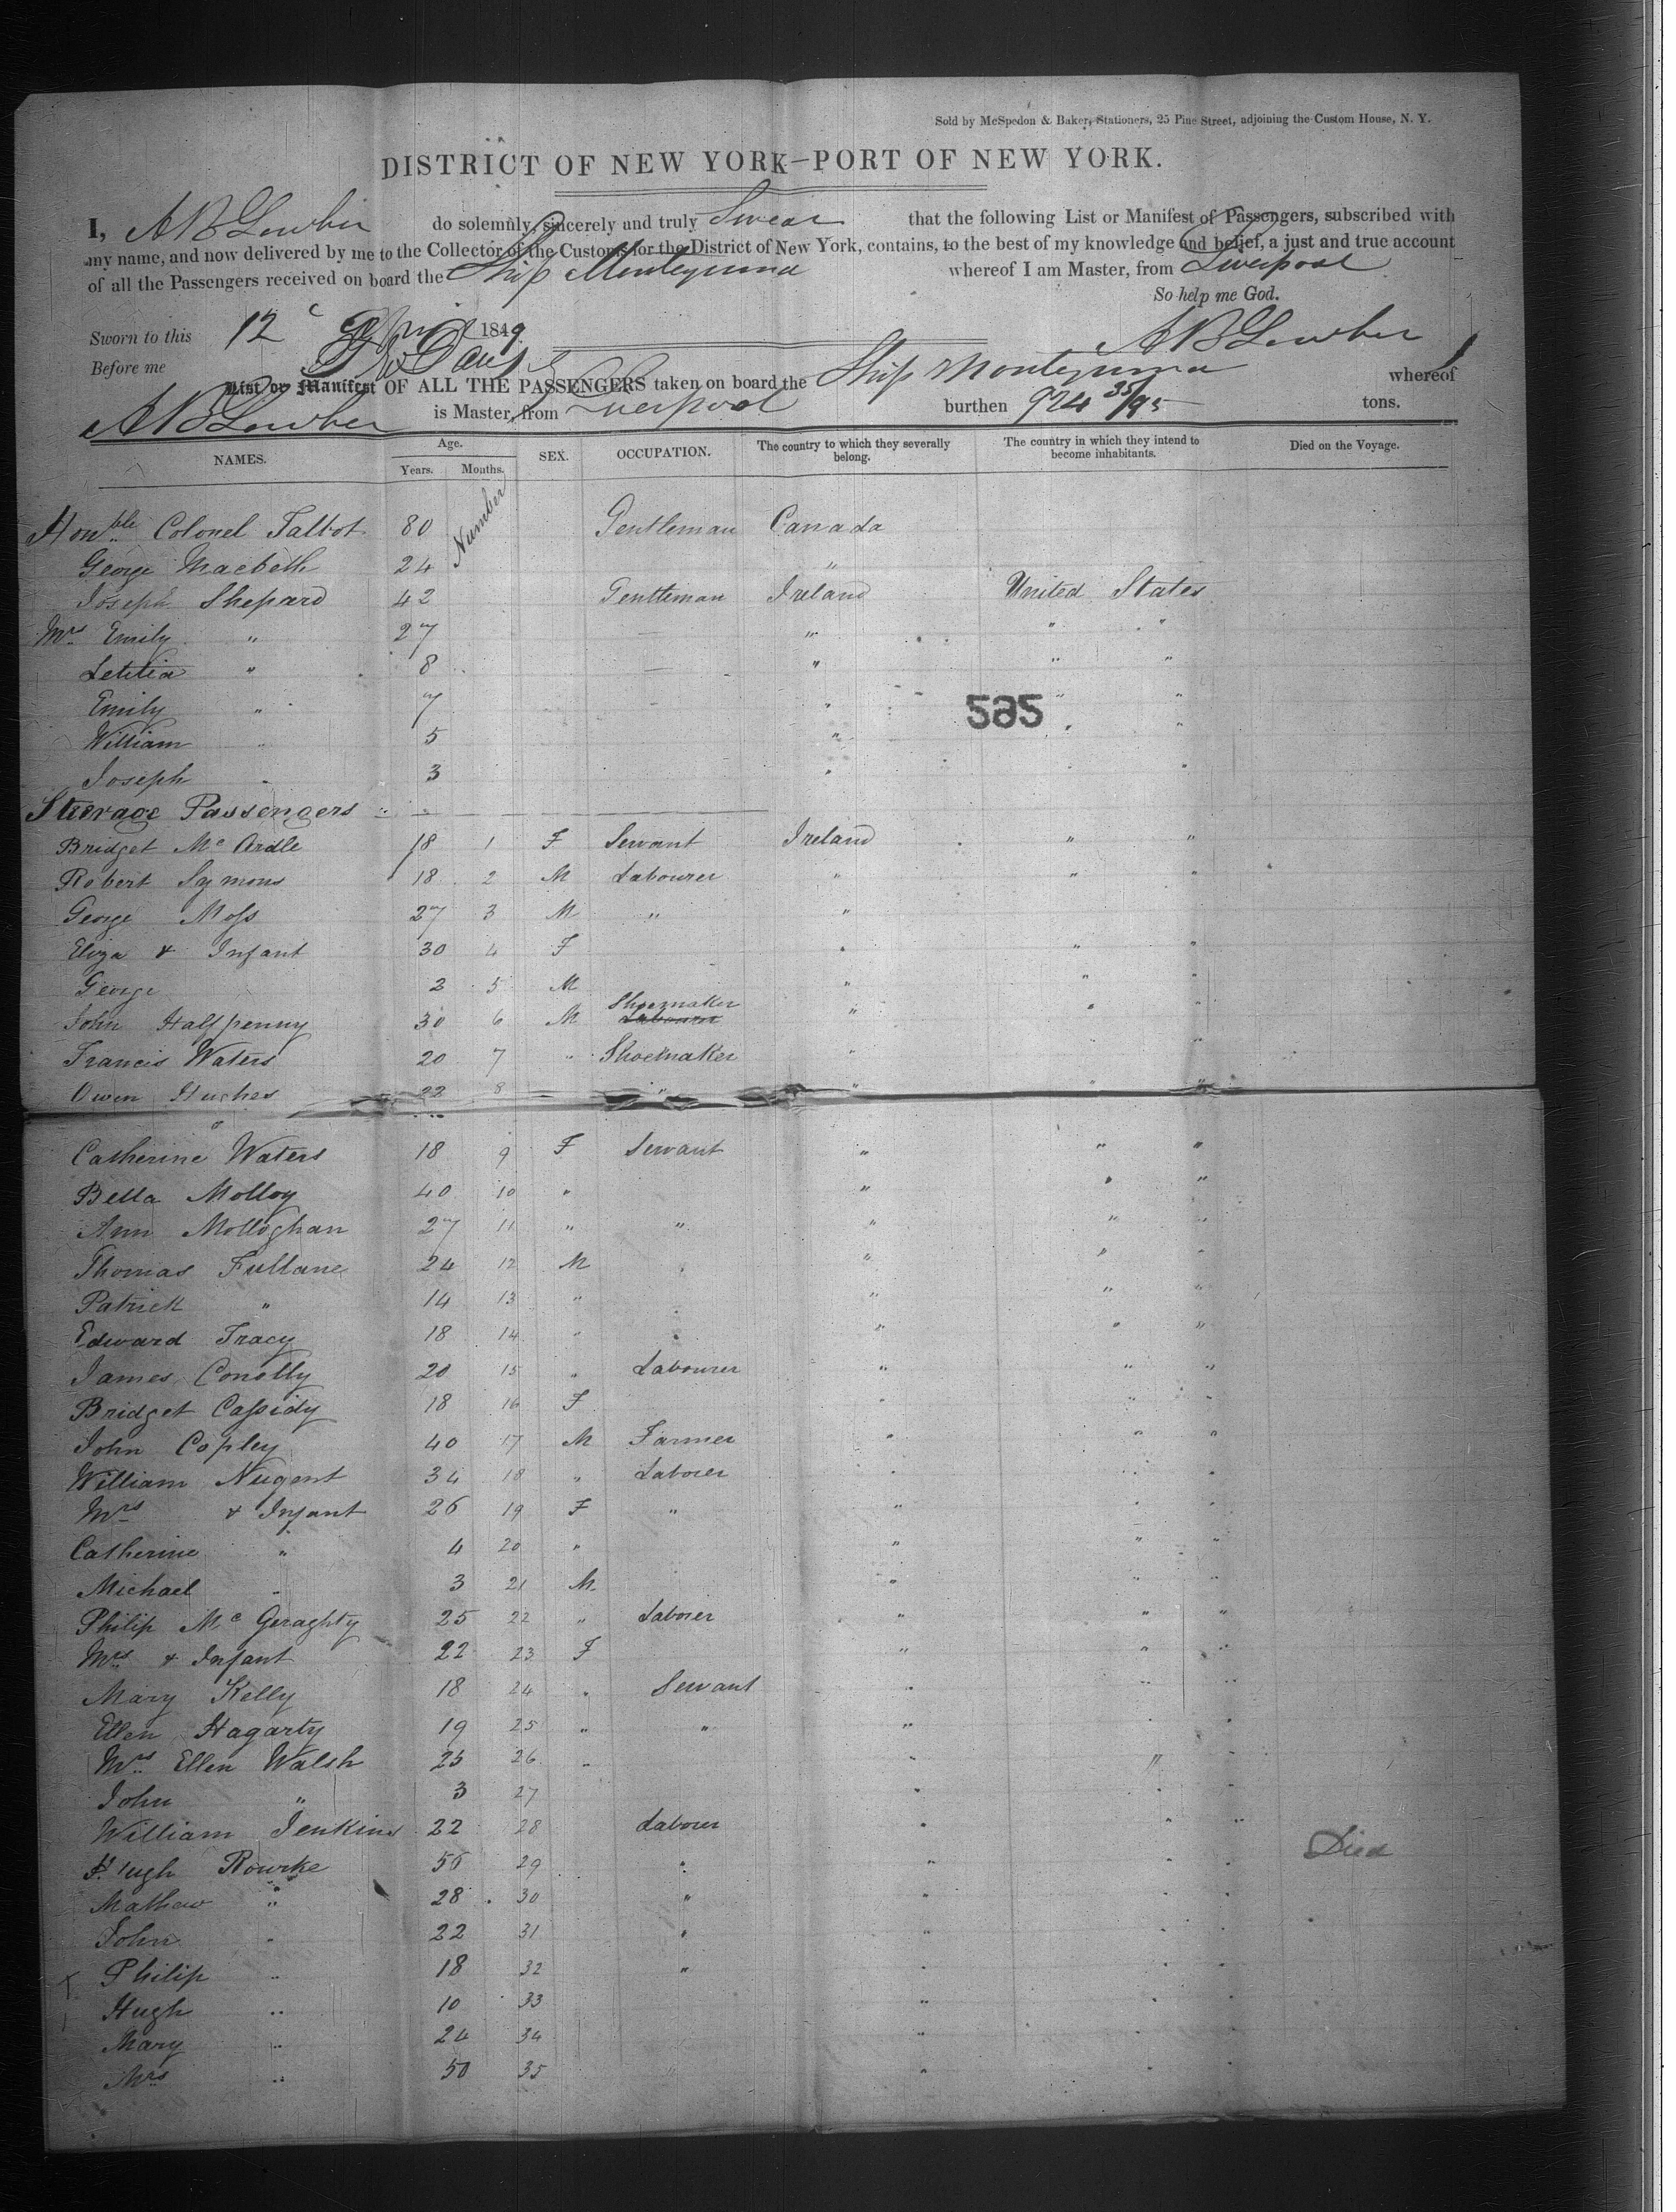 Sold by McSpedon & Baker, Stationers, 25 Pine Street, adjoining the Custom House, N. Y.
DISTRICT OF NEW YORK—PORT OF NEW YORK.
I, A B Lowber do solemnly, sincerely and truly Swear that the following List or Manifest of Passengers, subscribed with
my name, and now delivered by me to the Collector of the Customs for the District of New York, contains, to the best of my knowledge and belief, a just and true account
of all the Passengers received on board the Ship Montezuma whereof I am Master, from Liverpool
So help me God.
Sworn to this 12 April 1849 A B Lowber
Before me
List or Manifest OF ALL THE PASSENGERS taken on board the Ship Montezuma whereof
A B Lowber is Master, from Liverpool burthen 924 35/95 tons.
NAMES. Age. Years. Months. SEX. OCCUPATION. The country to which they severally belong. The country in which they intend to become inhabitants. Died on the Voyage.
Number
Honble Colonel Talbot 80 Gentleman Canada
George Macbeth 24 "
Joseph Shepard 42 Gentleman Ireland United States
Mrs Emily " 27 — " " "
Letitia " 8 — " " "
Emily " 7 " " "
585
William " 5 " " "
Joseph " 3 " " "
Steerage Passengers
Bridget Mc Ardle 18 1 F Servant Ireland " "
Robert Symons 18 2 M Labourer " " "
George Moss 27 3 M " "
Eliza & Infant 30 4 F " " "
George 2 5 M " " "
John Halfpenny 30 6 M Shoemaker Labourer " " "
Francis Waters 20 7 " Shoemaker " " "
Owen Hughes 22 8 " " " "
Catherine Waters 18 9 F Servant " " "
Bella Molloy 40 10 " " " "
Ann Molloghan 27 11 " " " " "
Thomas Fullane 24 12 M " " "
Patrick " 14 13 " " " "
Edward Tracy 18 14 " " " " "
James Conolly 20 15 " Labourer " " "
Bridget Cassidy 18 16 F " " "
John Copley 40 17 M Farmer " " "
William Nugent 34 18 " Laborer " " "
Mrs & Infant 26 19 F " " " "
Catherine " 4 20 " " " "
Michael " 3 21 M " " "
Philip Mc Geraghty 25 22 " Laborer " " "
Mrs & Infant 22 23 F " " "
Mary Kelly 18 24 " Servant " " "
Ellen Hagarty 19 25 " " " " "
Mrs Ellen Walsh 25 26 " " " "
John " 3 27 " " "
William Jenkins 22 28 Laborer " " "
Hugh Rourke 56 29 " " " " Died
Mathew " 28 30 " " " "
John " 22 31 " " " "
Philip " 18 32 " " " "
Hugh " 10 33 " " "
Mary " 24 34 " " "
Mrs " 50 35 " " "